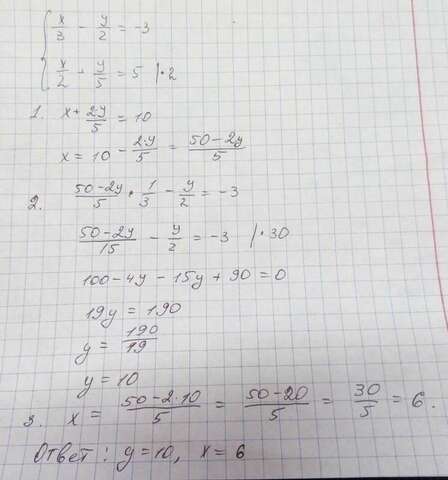 x/3 - y/2 = -3
x/2 + y/5 = 5 |·2
1. x + 2y/5 = 10
x = 10 - 2·y/5 = 50-2y/5
2. 50-2y/5 · 1/3 - y/2 = -3
50-2y/15 - y/2 = -3 |·30
100-4y-15y+90=0
19y = 190
y = 190/19
y = 10
3. x = 50-2·10/5 = 50-20/5 = 30/5 = 6.
Ответ: y=10, x=6